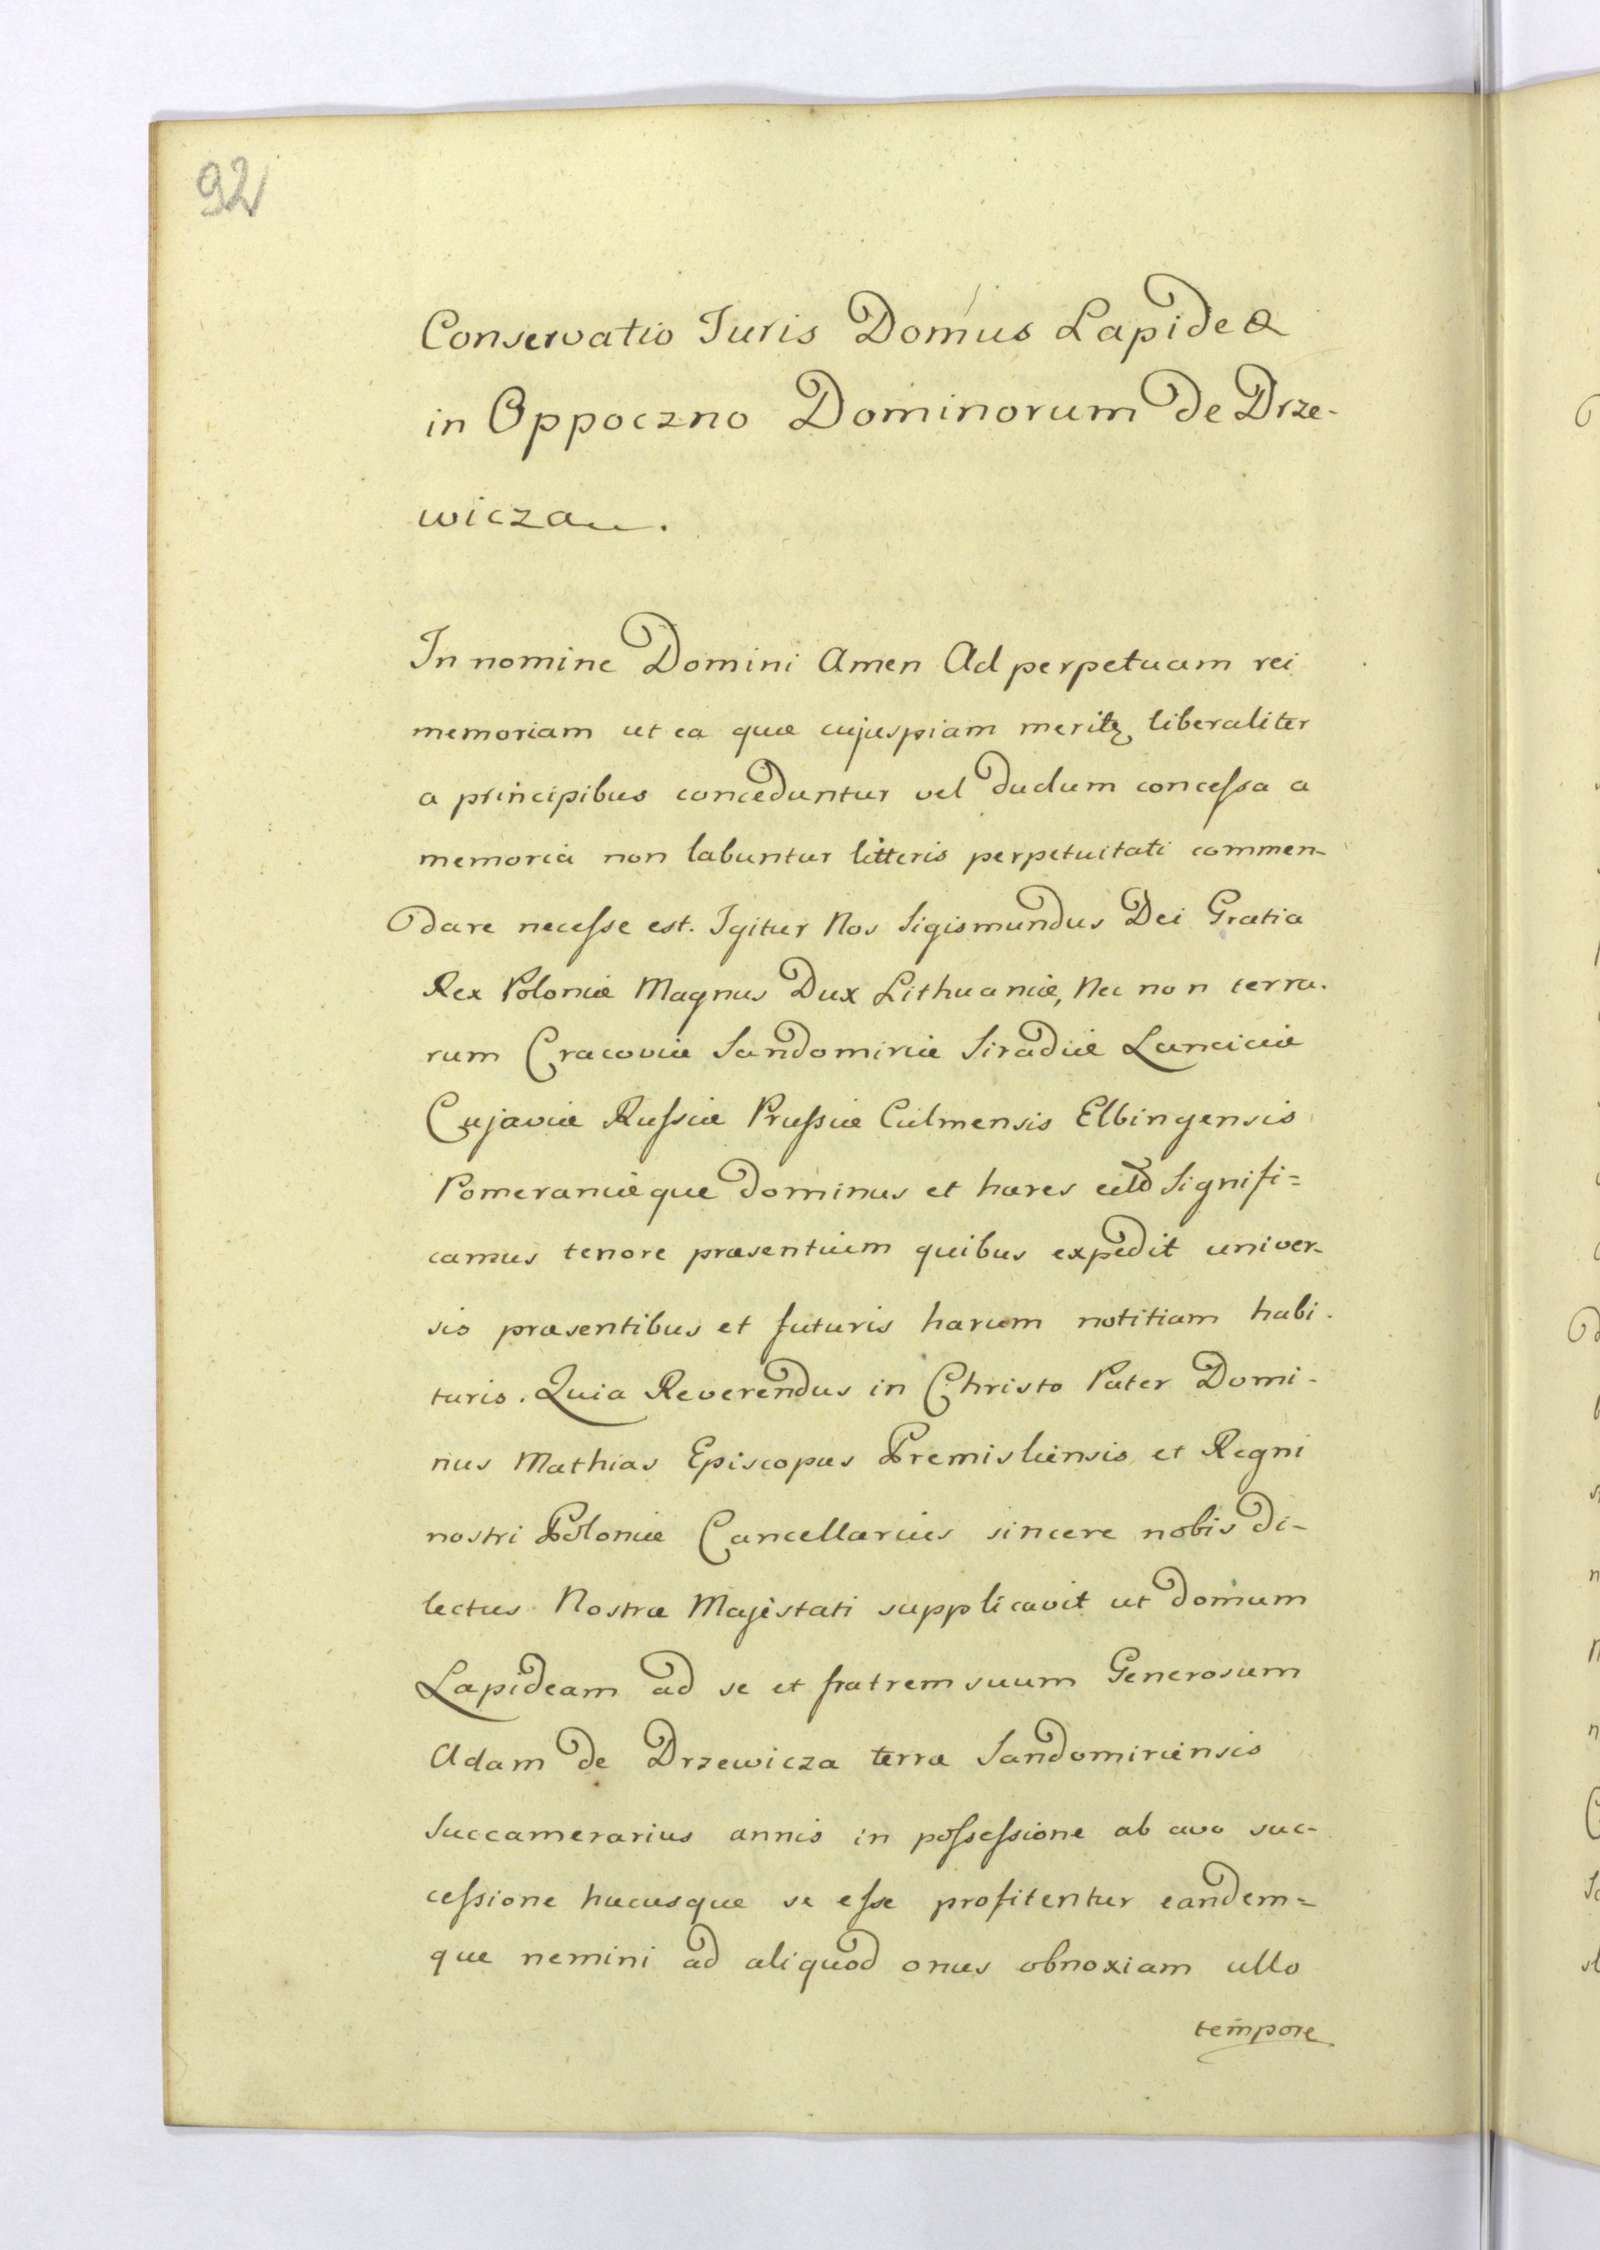 92
Conservatio Juris Domus Lapideæ
in Oppoczno Dominorum de Drze-
wicza.
In nomine Domini Amen Ad perpetuam rei
memoriam ut ea quæ cujuspiam liberaliter
a principibus conceduntur vel dudum concessa a
memoria non labuntur litteris perpetuitati commen-
dare necesse est. Igitur Nos Sigismundus Dei Gratia
Rex Poloniæ Magnus Dux Lithuaniæ, Nec non terra-
rum Cracoviæ Sandomiriæ Siradiæ Lanciciæ
Cujaviæ Russiæ Prussiæ Culmensis Elbingensis
Pomeraniæque dominus et hæres Signifi=
camus tenore præsentium quibus expedit univer-
sis præsentibus et futuris harum notitiam habi-
turis. Quia Reverendus in Christo Pater Domi-
nus Mathias Episcopus Premisliensis et Regni
nostri Poloniæ Cancellarius sincere nobis di-
lectus Nostræ Majestati supplicavit ut domum
Lapideam ad se et fratrem suum Generosum
Adam de Drzewicza terræ Sandomiriensis
Succamerarius annis in possessione ab avo suc-
cessione hucusque se esse profitentur eandem=
que nemini ad aliquod onus obnoxiam ullo
tempore